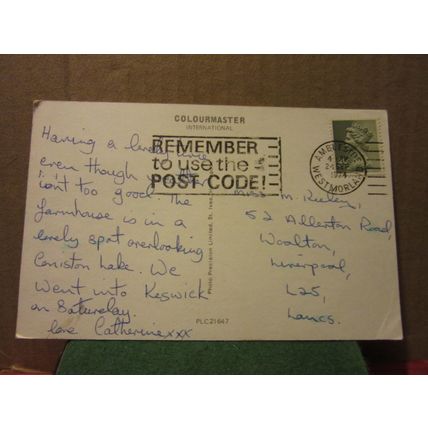 COLOURMASTER
INTERNATIONAL
REMEMBER
to use the
POST CODE!
AMBLESIDE
WESTMORLAND
1974
Having a
even though
isn't too good the
farmhouse is in a
lovely spot overlooking
Coniston Lake. We
went into Keswick
on Saturday.
love Catherine xxx
Miss M. Riley,
52 Allerton Road,
Woolton,
Liverpool,
L25,
Lancs.
Photo Precision Limited, St. Ives
PLC21647